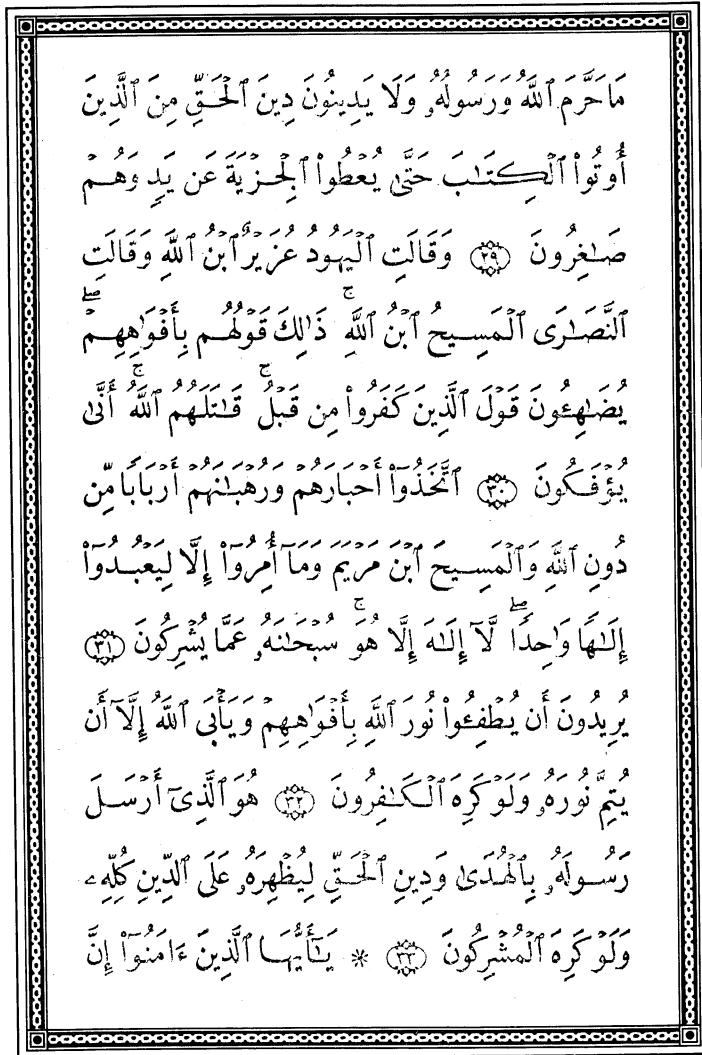 مَا حَرَّمَ ٱللَّهُ وَرَسُولُهُۥ وَلَا يَدِينُونَ دِينَ ٱلْحَقِّ مِنَ ٱلَّذِينَ
أُوتُوا۟ ٱلْكِتَٰبَ حَتَّىٰ يُعْطُوا۟ ٱلْجِزْيَةَ عَن يَدٍ وَهُمْ
صَٰغِرُونَ ٢٩ وَقَالَتِ ٱلْيَهُودُ عُزَيْرٌ ٱبْنُ ٱللَّهِ وَقَالَتِ
ٱلنَّصَٰرَى ٱلْمَسِيحُ ٱبْنُ ٱللَّهِ ۚ ذَٰلِكَ قَوْلُهُم بِأَفْوَٰهِهِمْ ۖ
يُضَٰهِـُٔونَ قَوْلَ ٱلَّذِينَ كَفَرُوا۟ مِن قَبْلُ ۚ قَٰتَلَهُمُ ٱللَّهُ ۚ أَنَّىٰ
يُؤْفَكُونَ ٣٠ ٱتَّخَذُوٓا۟ أَحْبَارَهُمْ وَرُهْبَٰنَهُمْ أَرْبَابًا مِّن
دُونِ ٱللَّهِ وَٱلْمَسِيحَ ٱبْنَ مَرْيَمَ وَمَآ أُمِرُوٓا۟ إِلَّا لِيَعْبُدُوٓا۟
إِلَٰهًا وَٰحِدًا ۖ لَّآ إِلَٰهَ إِلَّا هُوَ ۚ سُبْحَٰنَهُۥ عَمَّا يُشْرِكُونَ ٣١
يُرِيدُونَ أَن يُطْفِـُٔوا۟ نُورَ ٱللَّهِ بِأَفْوَٰهِهِمْ وَيَأْبَى ٱللَّهُ إِلَّآ أَن
يُتِمَّ نُورَهُۥ وَلَوْ كَرِهَ ٱلْكَٰفِرُونَ ٣٢ هُوَ ٱلَّذِىٓ أَرْسَلَ
رَسُولَهُۥ بِٱلْهُدَىٰ وَدِينِ ٱلْحَقِّ لِيُظْهِرَهُۥ عَلَى ٱلدِّينِ كُلِّهِۦ
وَلَوْ كَرِهَ ٱلْمُشْرِكُونَ ٣٣ * يَٰٓأَيُّهَا ٱلَّذِينَ ءَامَنُوٓا۟ إِنَّ